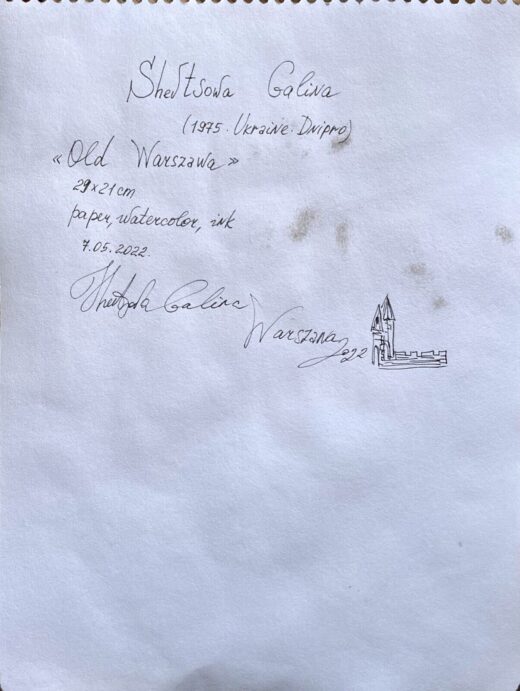 Shevtsova Galina
(1975. Ukraine. Dnipro)
«Old Warszawa»
29x21cm
paper, watercolor, ink
7.05.2022.
Shevtsova Galina
Warszawa
2022